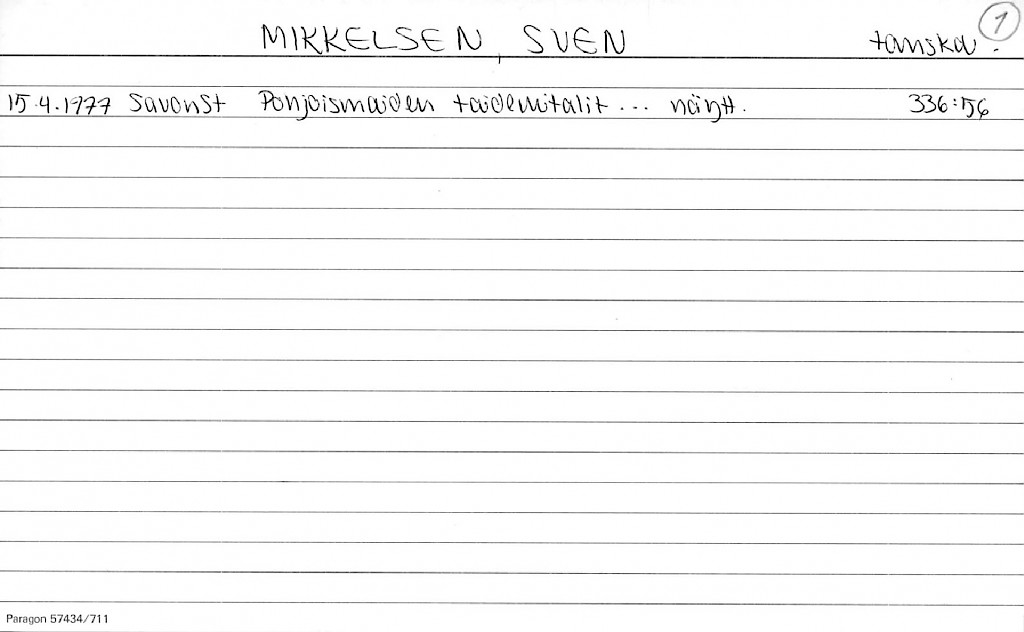 MIKKELSEN, SVEN tanska. 1
15.4.1977 SavonSt Pohjoismaiden taidemitalit... näytt. 336:56
Paragon 57434/711